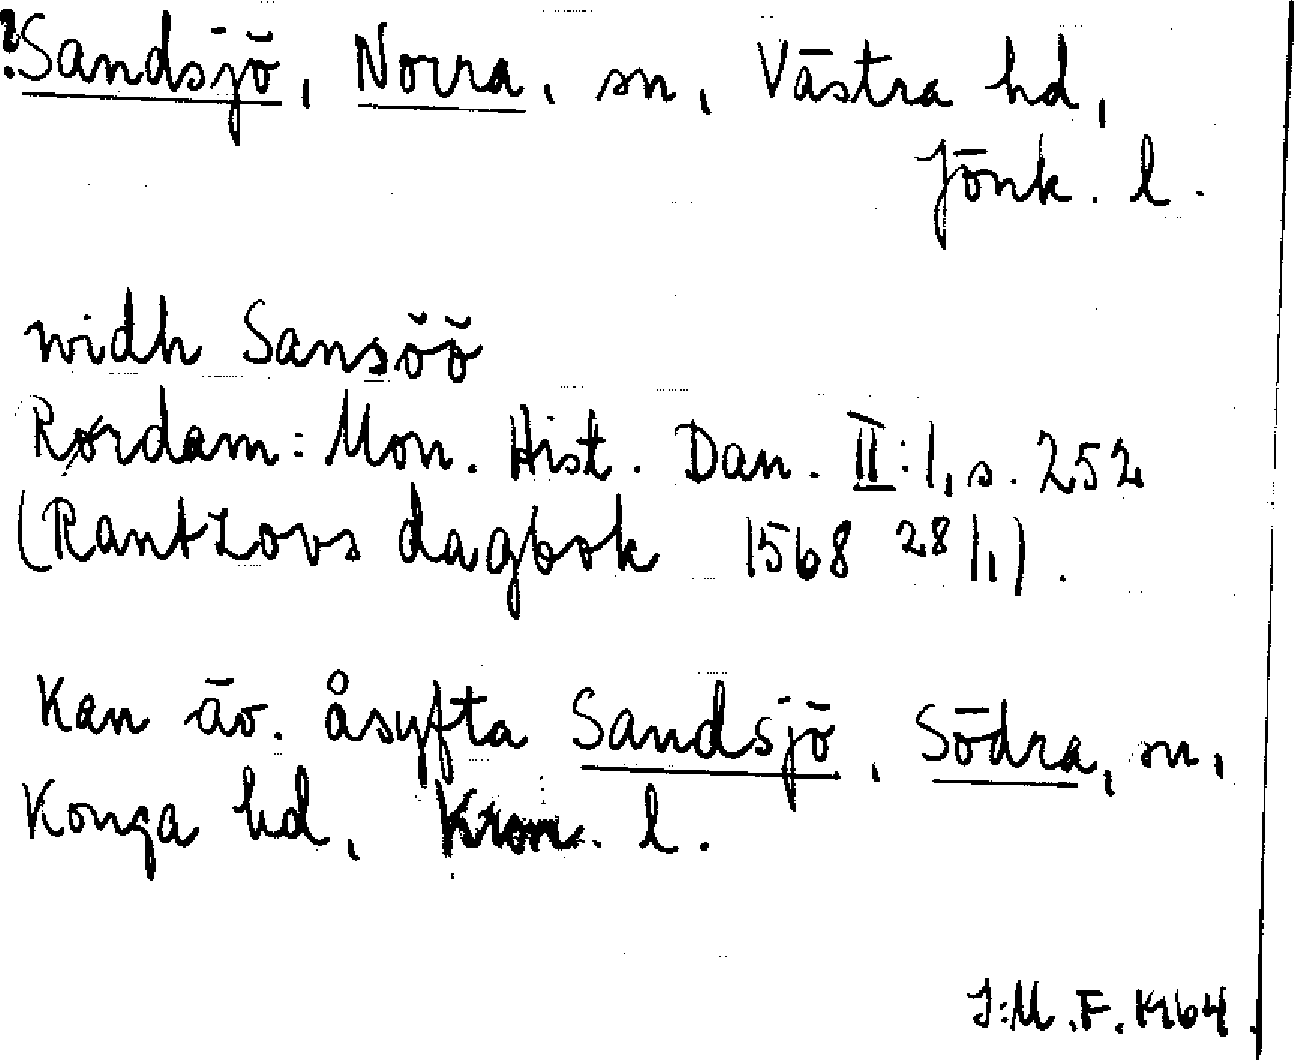 ?Sandsjö, Norra, sn, Västra hd,
Jönk. l.
widh Sansöö
Rørdam: Mon. Hist. Dan. II:1, s. 252
(Rantzovs dagbok 1568 28/1).
Kan äv. åsyfta Sandsjö, Södra, sn,
Konga hd, Kron. l.
J:M.F. 1964.